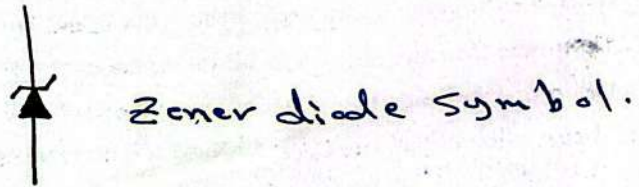 Zener diode symbol.